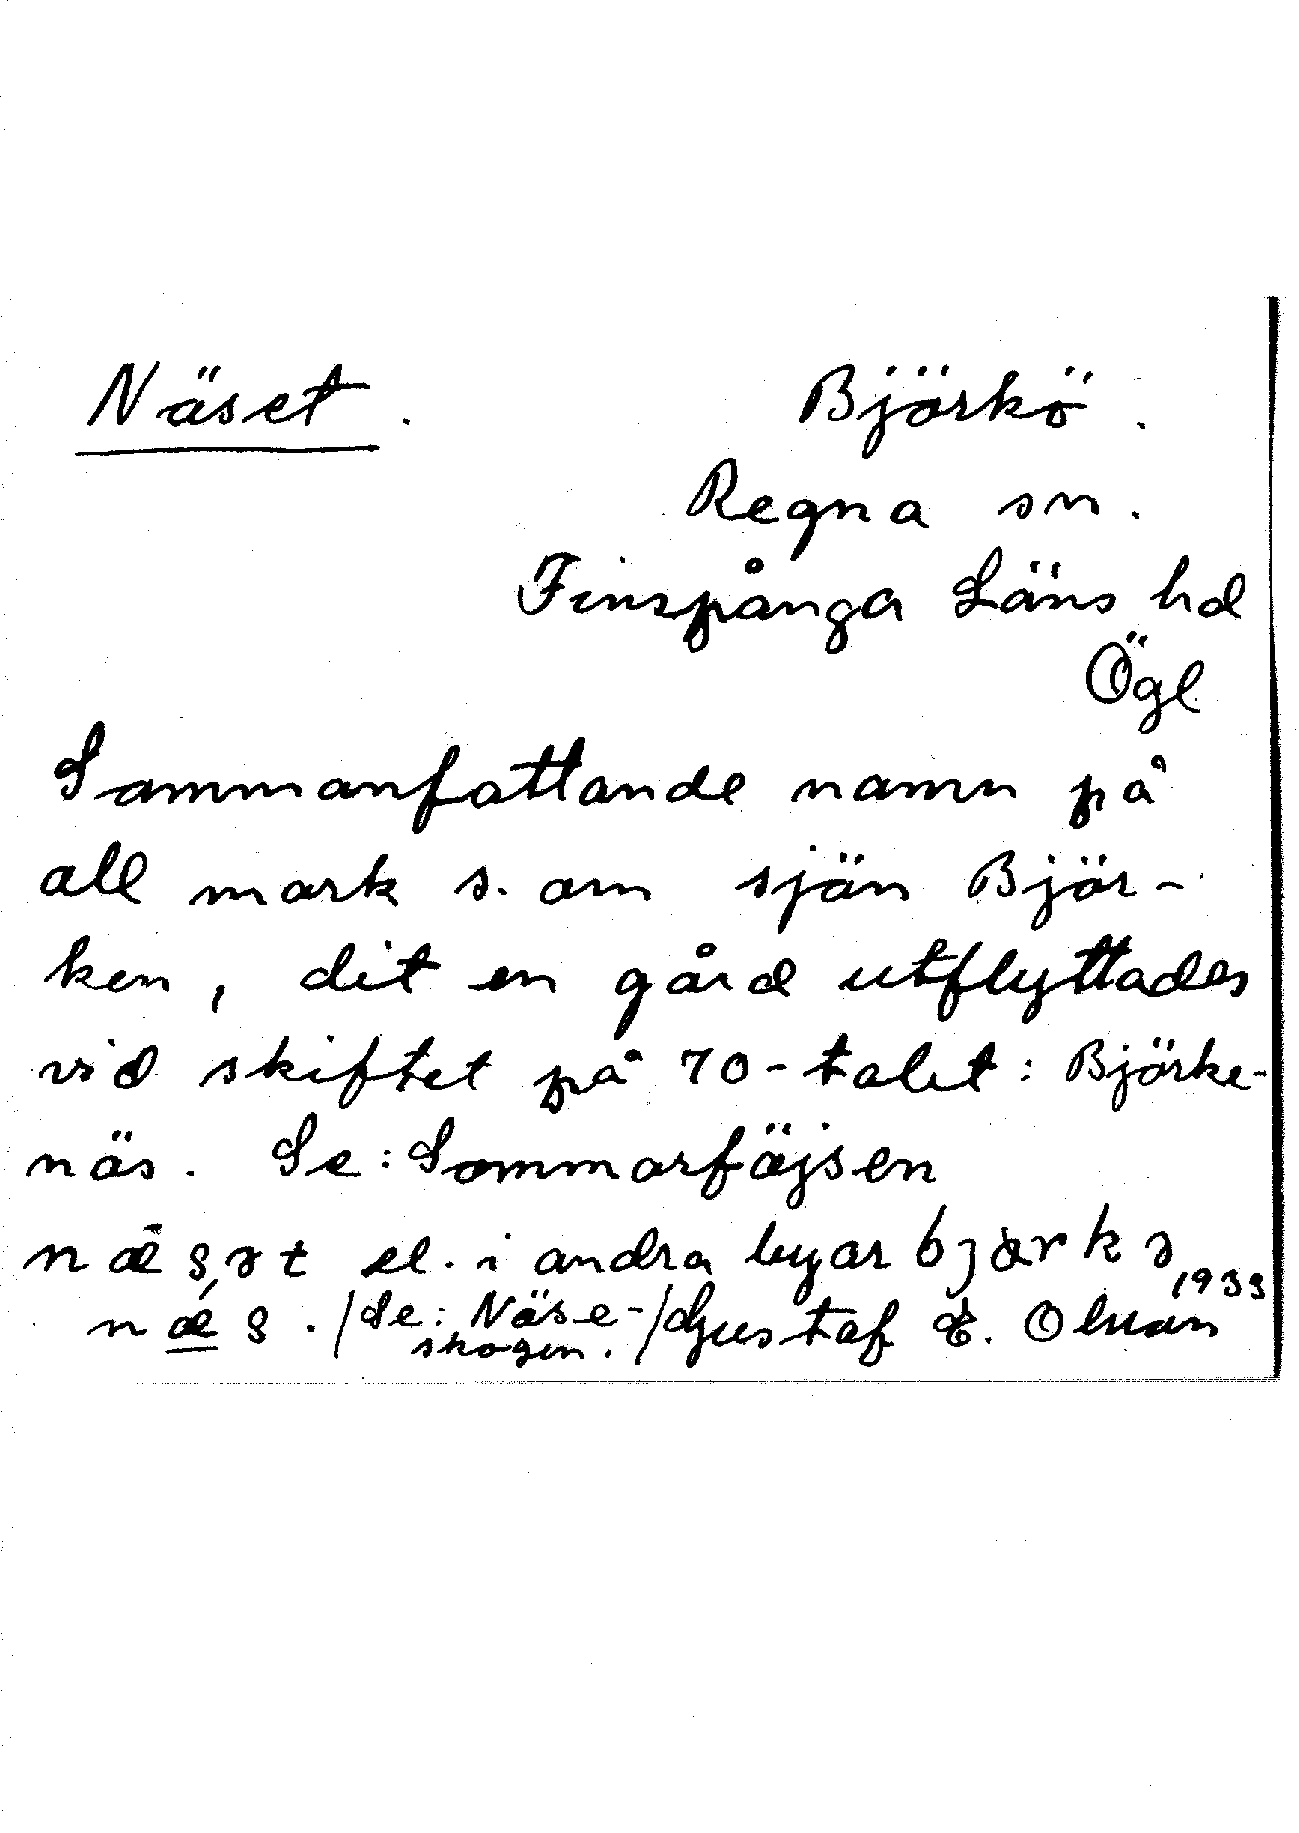 Näset.
Björkö.
Regna sn.
Finspånga Läns hd
Ögl
Sammanfattande namn på
all mark s. om sjön Björ-
ken, dit en gård utflyttades
vid skiftet på 70-talet: Björke-
näs. Se: Sommarföjsen
næsət el. i andra byar bjȯrkə
næs. /Se: Näse-
skogen./ Gustaf E. Olman
1933